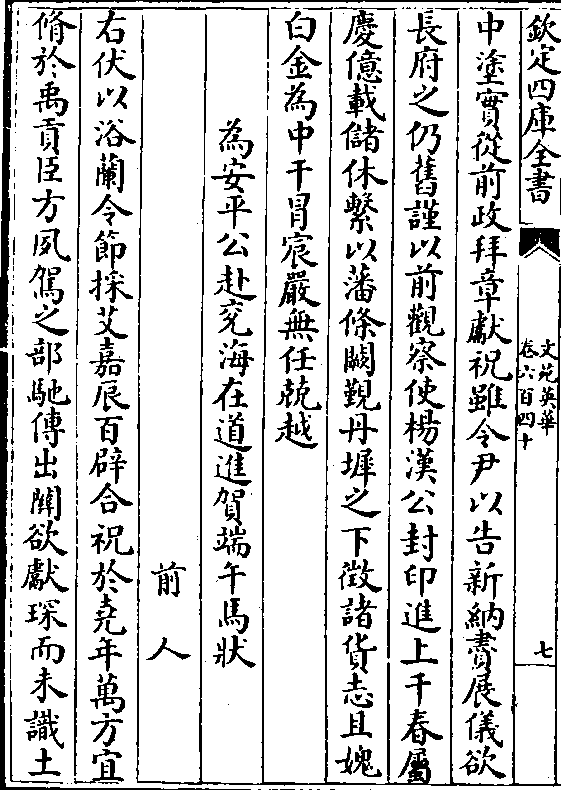 欽定四庫全書
文苑英華
卷六百四十
七
中塗實從前政拜章獻祝雖令尹以告新納賮展儀欲
長府之仍舊謹以前觀察使楊漢公封印進上千春屬
慶億載儲休繫以藩條闕覲丹墀之下徵諸貨志且媿
白金為中干冒宸嚴無任兢越
為安平公赴兖海在道進賀端午馬狀
前人
右伏以浴蘭令節採艾嘉辰百辟合祝於堯年萬方宜
脩於禹貢臣方夙駕之部馳傳出關欲獻琛而未識土